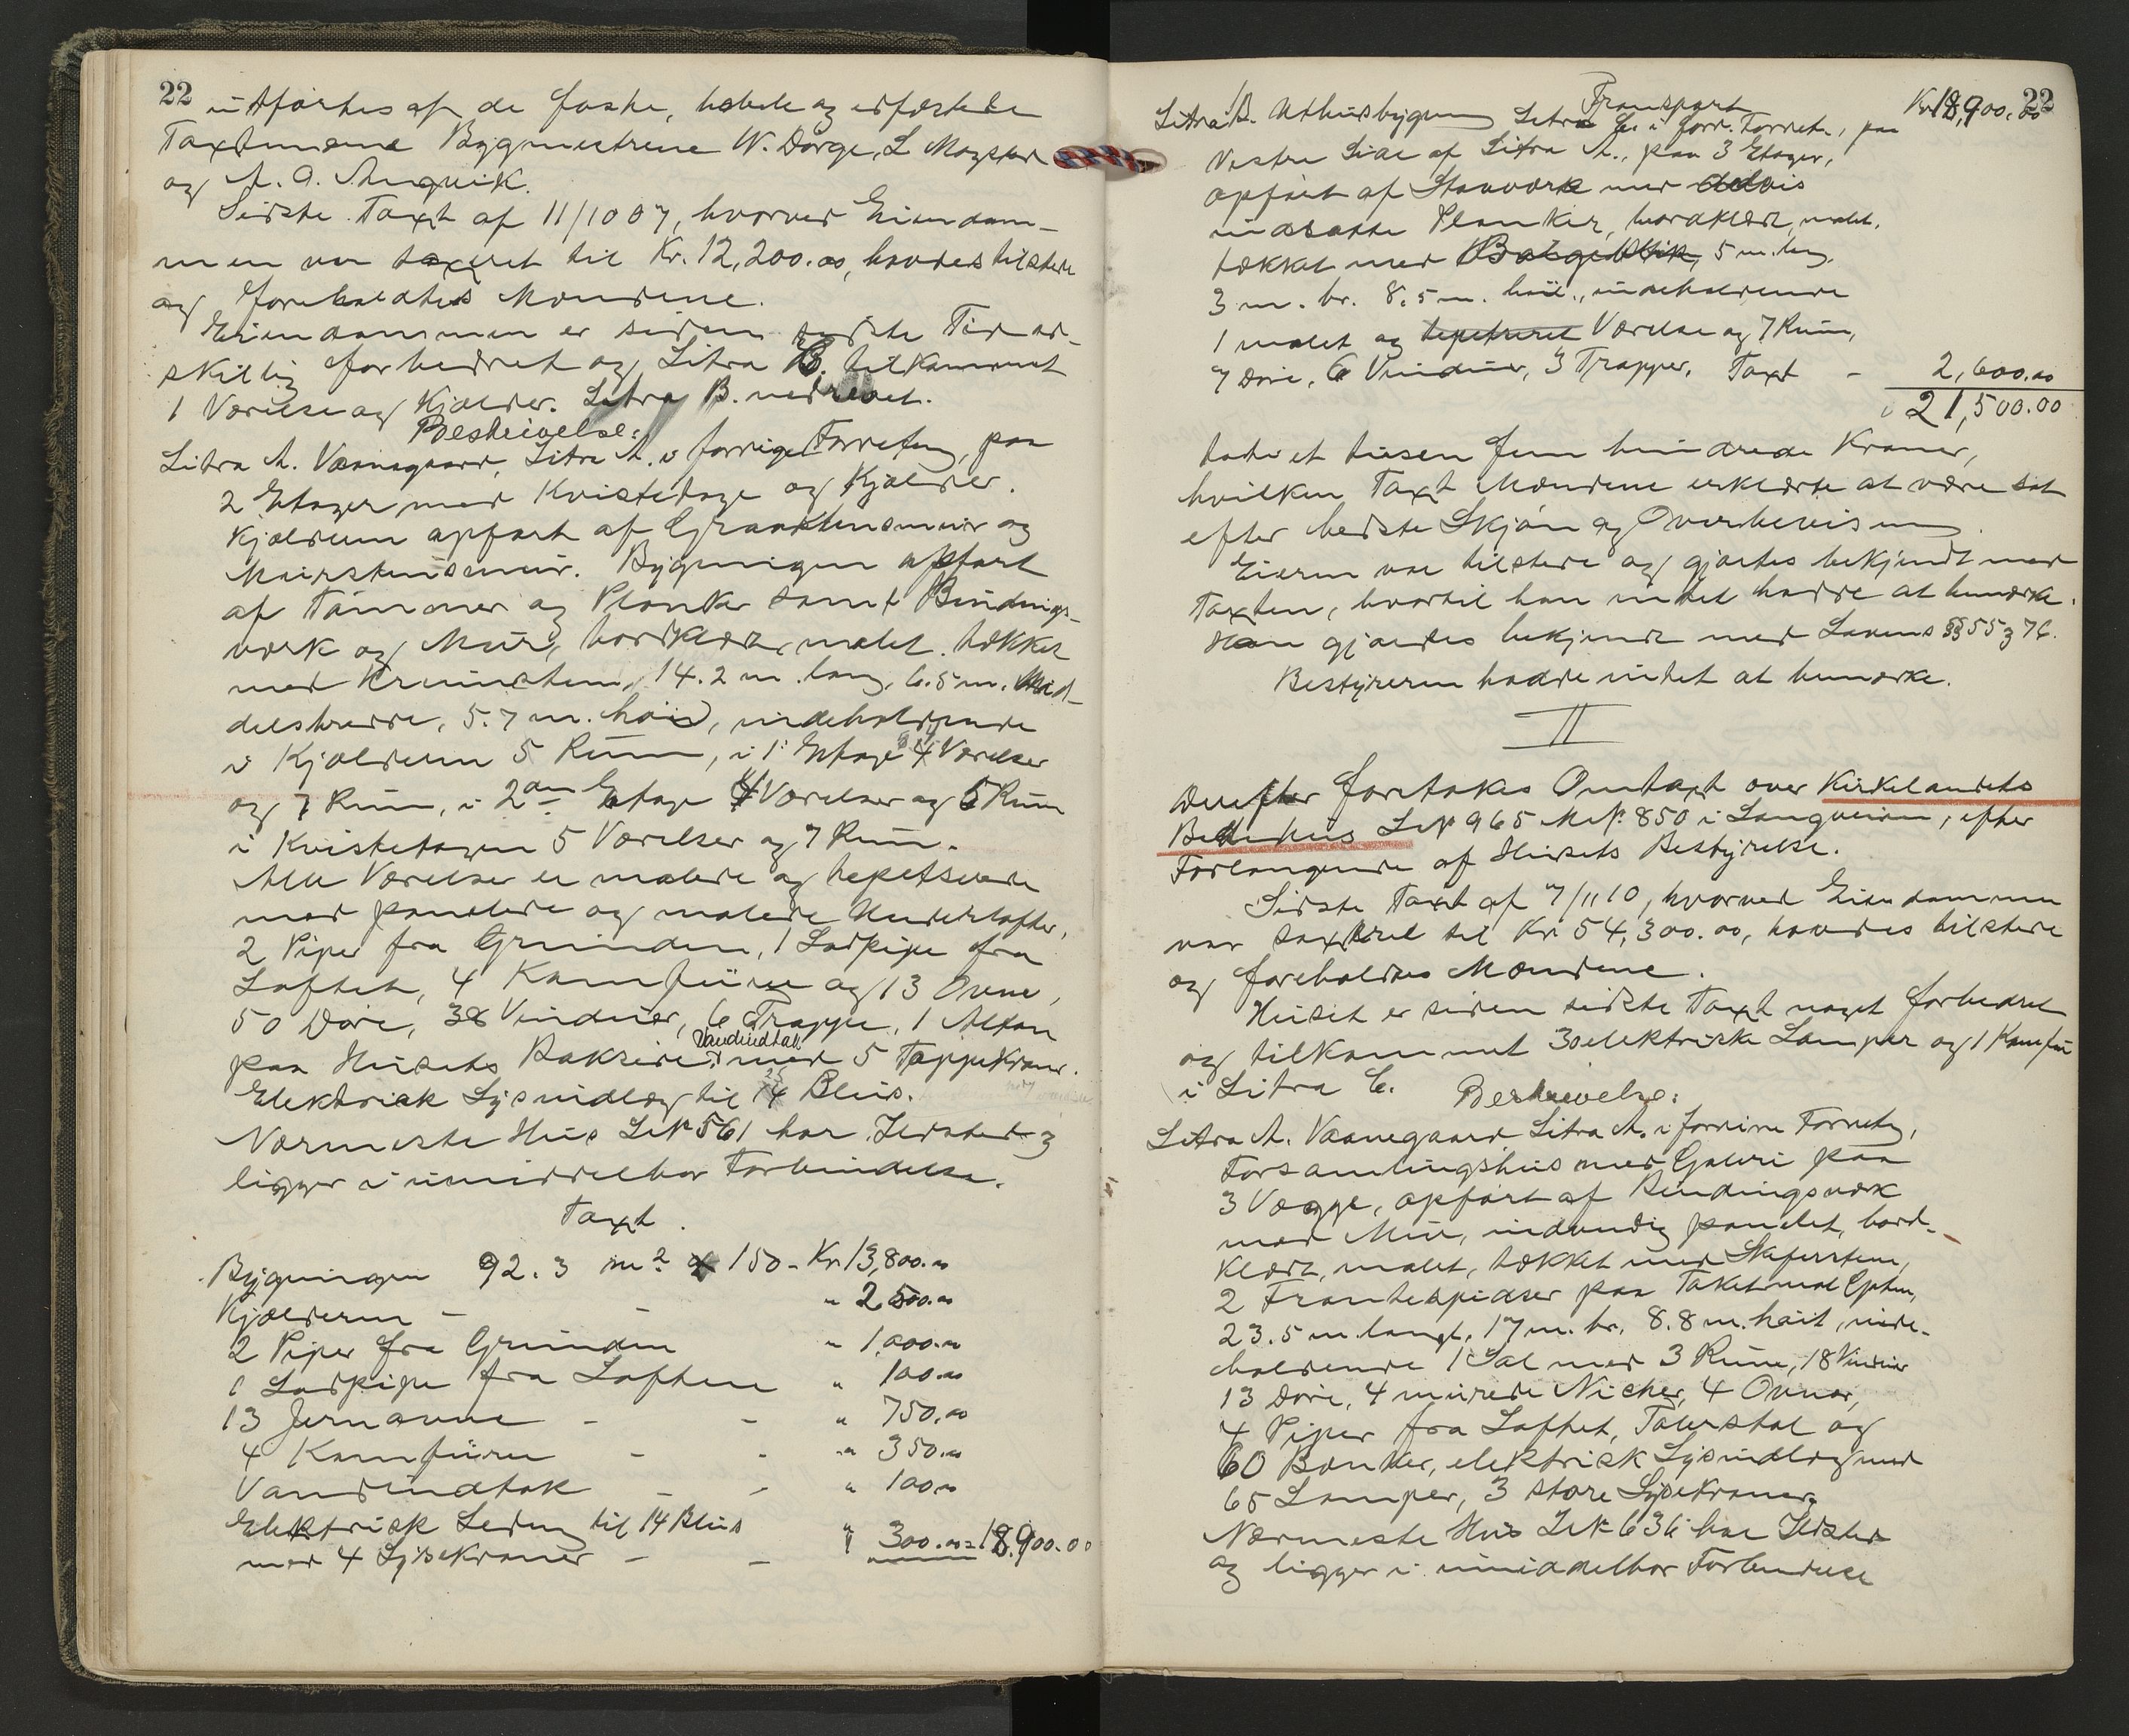 22
utførtes af de faste, valgte og edfæstede
Taxtmænd Bygmestrene W. Dørge, L. Møgster
og A. O. Angvik.
Sidste Taxt af 11/10 07, hvorved Eiendom-
men var taxeret til Kr. 12,200.00, havdes tilstede
og foreholdtes Mændene.
Eiendommen er siden sidste Tid ad-
skillig forbedret og Litra B. tilkommet
1 Værelse og Kjælder. Litra B. nedrevet.
Beskrivelse:
Litra A. Vaanegaard, Litra A. i forrige Forretng, paa
2 Etager med Kvistetage og Kjælder.
Kjælderen opført af Graastensmur og
Murstensmur. Bygningen opført
af Tømmer og Planker samt Bindings-
værk og Mur, bordklædt, malet, tækket
med Krumsten, 14.2 m. lang, 6.5 m. Mid-
delsbredde, 5.7 m. høi, indeholdende
i Kjælderen 5 Rum, i 1' Etage 4 Værelser
og 7 Rum, i 2den Etage 4 Værelser og 6 Rum
i Kvistetagen 5 Værelser og 7 Rum.
Alle Værelser er malede og tapetserede
med panelede og malede Underlofter,
2 Piper fra Grunden, 1 Ladpipe fra
Loftet, 4 Komfurer og 13 Ovne,
50 Døre, 38 Vinduer, 6 Trapper, 1 Altan
paa Husets Bakside. Vandindtak med 5 Tappekraner.
Elektrisk Lysindlæg til 14 Blus.
Nærmeste Hus Lnr 561 har Ildsted og
ligger i umiddelbar Forbindelse.
Taxt.
Bygningen 92.3 m² à 150 - Kr. 13,800.00
Kjælderen - - " 2,500.00
2 Piper fra Grunden " 1,000.00
1 Ladpipe fra Loftene " 100.00
13 Jernovne - - " 750.00
4 Komfurer - - " 350.00
Vandindtak - - " 100.00
Elektrisk Ledning til 14 Blus
med 4 Lysekroner - - " 300.00 = 18,900.00
22
Transport Kr. 18,900.00
Litra B. Uthusbygning Litra C. i forr. Forretn., paa
Vestre Side af Litra A., paa 3 Etager,
opført af Stavværk med delvis
indsatte Planker, bordklædt, malet,
tækket med Bølgeblik, 5 m. lang,
3 m. br. 8.5 m. høi, indeholdende
1 malet og tapetseret Værelse og 7 Rum,
7 Døre, 6 Vinduer, 3 Trapper. Taxt - 2,600.00
21,500.00
toti et tusen fem hundrede Kroner,
hvilken Taxt Mændene erklærte at være sat
efter bedste Skjøn og Overbevisning.
Eieren var tilstede og gjortes bekjendt med
Taxten, hvortil han intet hadde at bemærke.
Han gjordes bekjendt med Lovens §§ 55 og 76.
Bestyreren hadde intet at bemærke.
II
Derefter foretokes Omtaxt over Kirkelandets
Bedehus Lnr 965 Mnr. 850 i Langveien, efter
Forlangende af Husets Bestyrelse.
Sidste Taxt af 7/11 10, hvorved Eiendommen
var taxeret til Kr. 54,300.00, havdes tilstede
og foreholdtes Mændene.
Huset er siden sidste Taxt noget forbedret
og tilkommet 30 elektriske Lamper og 1 Komfur
i Litra C.
Beskrivelse:
Litra A. Vaanegaard Litra A. i forrige Forretng,
Forsamlingshus med Galleri paa
3 Vægge, opført af Bindingsværk
med Mur, indvendig panelet, bord-
klædt, malet, tækket med Skifersten,
2 Frontespidser paa Taket mod Gaten,
23.5 m. langt, 17 m. br. 8.8 m. høit, inde-
holdende 1 Sal med 3 Rum, 18 Vinduer
13 Døre, 4 murede Nicher, 4 Ovner,
4 Piper fra Loftet, Talerstol og
60 Bænker, elektrisk Lysindlæg med
65 Lamper, 3 store Lysekroner.
Nærmeste Hus Lnr 636 har Ildsted
og ligger i umiddelbar Forbindelse